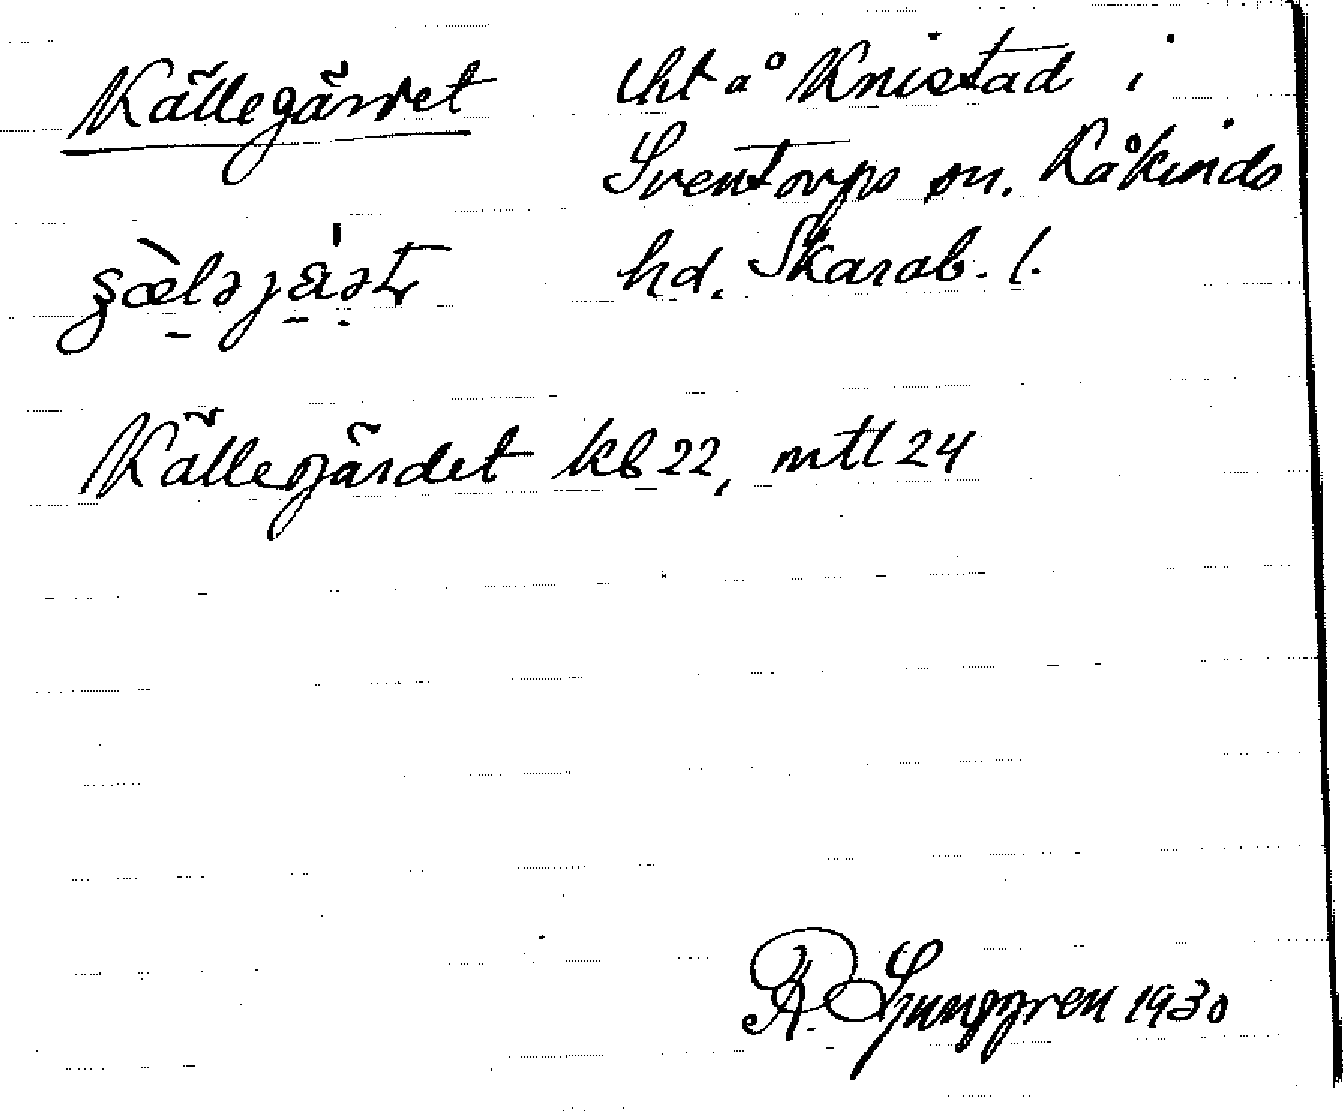 Källegärdet lht å Knistad i
Sventorps sn. Kåkinds
hd. Skarab. l.
Källegärdet kb 22, mtl 24
R. Ljunggren 1930